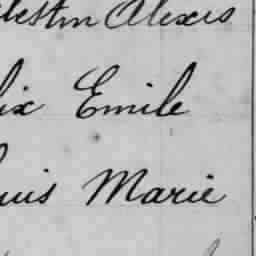 lestin Alexis
lix Emile
uis Marie